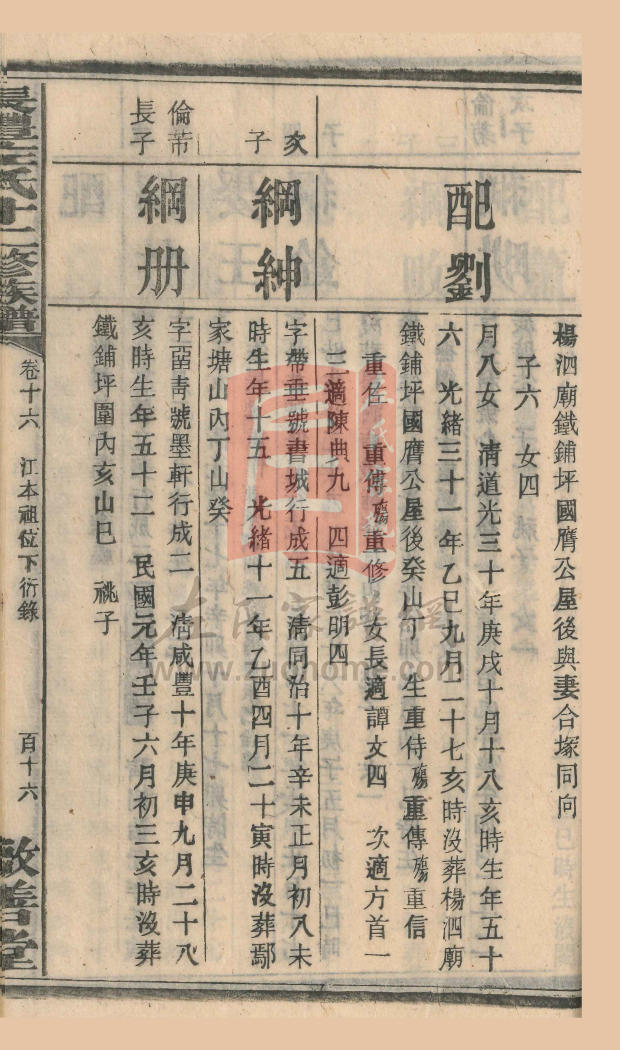 楊泗廟鐵鋪坪國膺公屋後與妻合塚同向
子六 女四
配劉
月八女 清道光三十年庚戌十月十八亥時生年五十
六 光緒三十一年乙巳九月二十七亥時没葬楊泗廟
鐵鋪坪國膺公屋後癸山丁 生重侍殤重傳殤重信
重佐 重傳殤重修 女長適譚文四 次適方首一
三適陳典九 四適彭明四
次子
綱紳
字帶垂號書城行成五 清同治十年辛未正月初八未
時生年十五 光緒十一年乙酉四月二十寅時没葬鄢
家塘山內丁山癸
倫芾長子
綱册
字 青號墨軒行成二 清咸豐十年庚申九月二十八
亥時生年五十二 民國元年壬子六月初三亥時没葬
鐵鋪坪圍內亥山巳 祧子
氏十二修族譜
卷十六
江本祖位下衍錄
百十六
敬善堂
左氏家譜網
www.zuohome.com